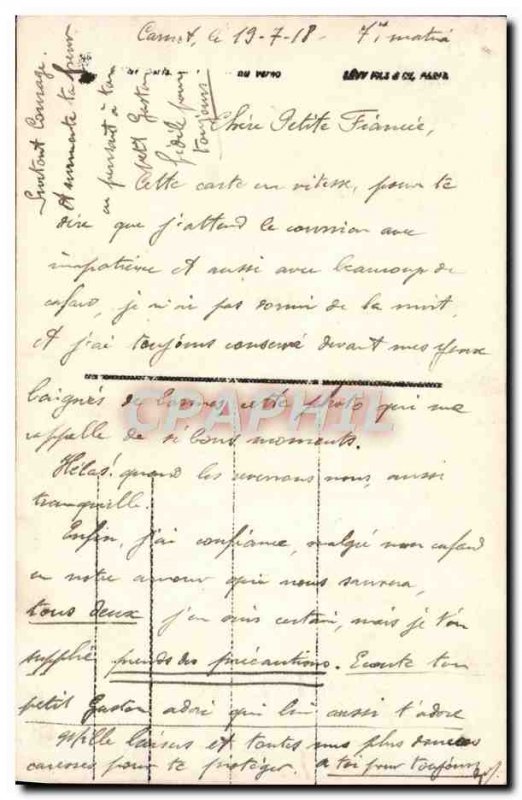 Carnot, le 19-7-18 - 7h matin
LÉVY FILS & Cie, PARIS
Chère Petite Fiancée,
Cette carte en vitesse, pour te
dire que j'attend le courrier avec
impatience et aussi avec beaucoup de
cafard, je n'ai pas dormi de la nuit,
et j'ai toujours conservé devant mes yeux
baignés de larmes cette photo qui me
rappelle de si bons moments.
Hélas! quand les reverrons nous, aussi
tranquille.
Enfin, j'ai confiance, malgré mon cafard
en notre amour qui nous sauvera,
tous deux j'en suis certain, mais je t'en
supplie prends des précautions. Ecoute ton
petit Gaston adoré qui lui aussi t'adore
Mille baisers et toutes mes plus douces
caresses pour te protéger. à toi pour toujours
Surtout Courage.
en pensant à ton
petit Gaston
fidèle pour
toujours
CPAPHIL